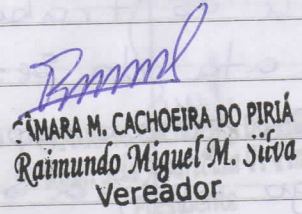 CÂMARA M. CACHOEIRA DO PIRIÁ
Raimundo Miguel M. Silva
Vereador